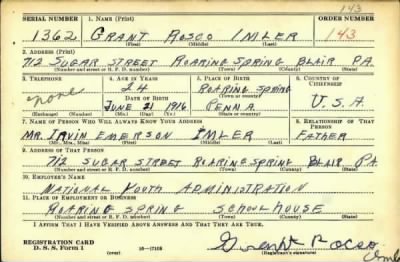 143
SERIAL NUMBER 1. NAME (Print) ORDER NUMBER
1362 GRANT ROSCO IMLER 143
(First) (Middle) (Last)
2. ADDRESS (Print)
712 SUGAR STREET ROARING SPRING BLAIR PA.
(Number and street or R. F. D. number) (Town) (County) (State)
3. TELEPHONE 4. AGE IN YEARS 5. PLACE OF BIRTH 6. COUNTRY OF CITIZENSHIP
none 24 ROARING SPRING
DATE OF BIRTH (Town or county)
JUNE 21 1916 PENNA. U.S.A.
(Exchange) (Number) (Mo.) (Day) (Yr.) (State or country)
7. NAME OF PERSON WHO WILL ALWAYS KNOW YOUR ADDRESS 8. RELATIONSHIP OF THAT PERSON
MR. IRVIN EMERSON IMLER FATHER
(Mr., Mrs., Miss) (First) (Middle) (Last)
9. ADDRESS OF THAT PERSON
712 SUGAR STREET ROARING SPRING BLAIR PA
(Number and street or R. F. D. number) (Town) (County) (State)
10. EMPLOYER'S NAME
NATIONAL YOUTH ADMINISTRATION
11. PLACE OF EMPLOYMENT OR BUSINESS
ROARING SPRING SCHOOLHOUSE
(Number and street or R. F. D. number) (Town) (County) (State)
I AFFIRM THAT I HAVE VERIFIED ABOVE ANSWERS AND THAT THEY ARE TRUE.
REGISTRATION CARD
D. S. S. Form 1 (over) 16—17105 Grant Rosco
(Registrant's signature)